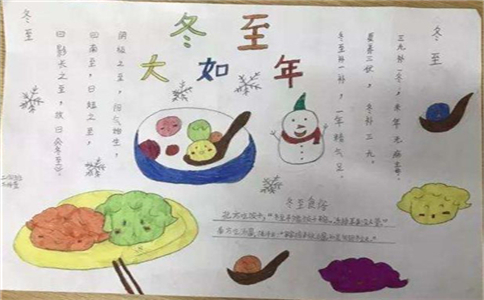 冬至
大如年
冬至
三九补一冬，来年无病痛。
夏养三伏，冬补三九。
冬至补一补，一年精气足，
冬至
阴极之至，阳气始生，
日南至，日短之至，
日影长之至，故曰冬至
冬至食俗
北方吃饺子，"冬至不端饺子碗，冻掉耳朵没人管。"
南方吃汤圆，